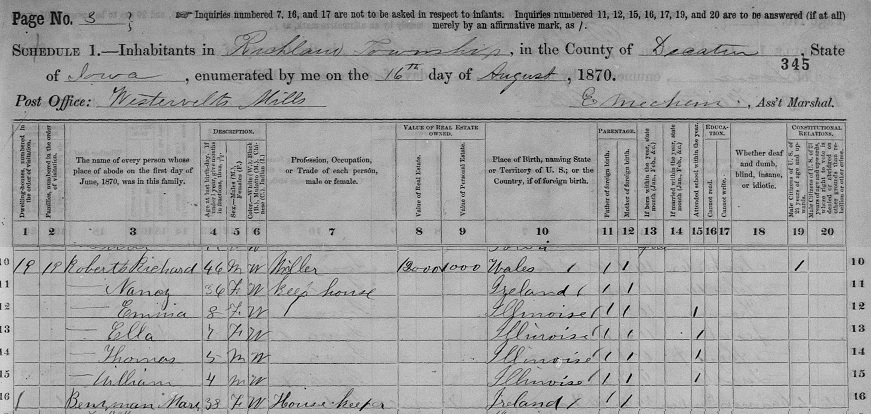 Page No. 3
☞ Inquiries numbered 7, 16, and 17 are not to be asked in respect to infants. Inquiries numbered 11, 12, 15, 16, 17, 19, and 20 are to be answered (if at all)
merely by an affirmative mark, as /.
SCHEDULE 1.—Inhabitants in Richland Township, in the County of Decatur, State
of Iowa, enumerated by me on the 16th day of August, 1870.
345
Post Office: Westervelts Mills
E Mechem, Ass't Marshal.
Dwelling-houses, numbered in the order of visitation.
Families, numbered in the order of visitation.
The name of every person whose place of abode on the first day of June, 1870, was in this family.
DESCRIPTION.
Age at last birth-day. If under 1 year, give months in fractions, thus,
Sex.—Males (M.), Females (F.)
Color.—White (W.), Black (B.), Mulatto (M.), Chinese (C.), Indian (I.)
Profession, Occupation, or Trade of each person, male or female.
VALUE OF REAL ESTATE OWNED.
Value of Real Estate.
Value of Personal Estate.
Place of Birth, naming State or Territory of U. S.; or the Country, if of foreign birth.
PARENTAGE.
Father of foreign birth.
Mother of foreign birth.
If born within the year, state month (Jan., Feb., &c.)
If married within the year, state month (Jan., Feb., &c.)
Attended school within the year.
EDUCATION.
Cannot read.
Cannot write.
Whether deaf and dumb, blind, insane, or idiotic.
CONSTITUTIONAL RELATIONS.
Male Citizens of U. S. of 21 years of age and upwards.
Male Citizens of U. S. of 21 years of age and upwards, whose right to vote is denied or abridged on other grounds than rebellion or other crime.
1 2 3 4 5 6 7 8 9 10 11 12 13 14 15 16 17 18 19 20
10 19 19 Roberts Richard 46 M W Miller 13000 1000 Wales / 1 1 1 10
11 — Nancy 36 F W Keep house Ireland / 1 1 11
12 — Emma 8 F W Illinoise / 1 1 1 12
13 — Ella 7 F W Illinoise / 1 1 1 13
14 — Thomas 5 M W Illinoise / 1 1 1 14
15 — William 4 M W Illinoise / 1 1 1 15
16 Mary 38 F W House keeper Ireland / 1 1 16